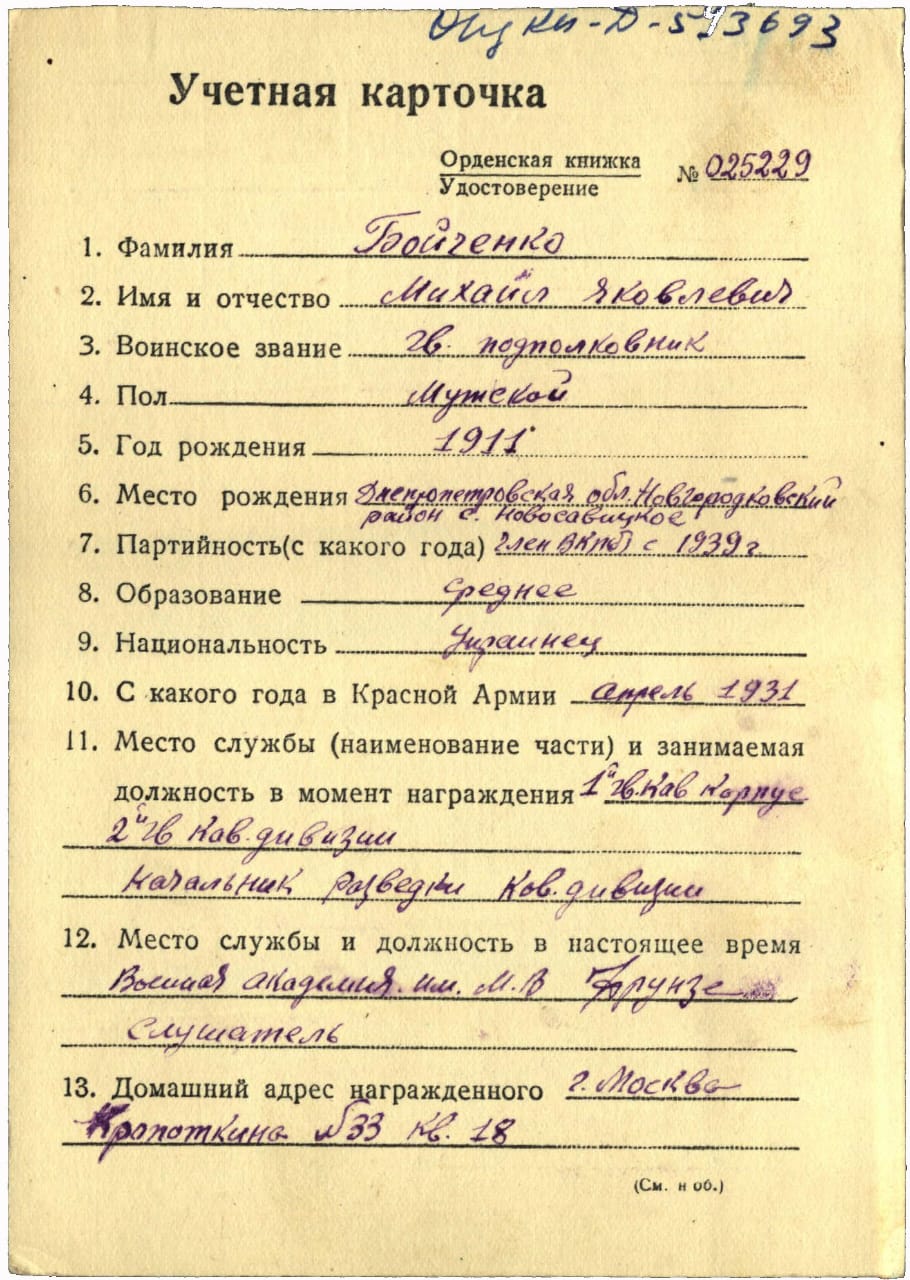 Д-593693
Учетная карточка
Орденская книжка
Удостоверение
№ 025229
1. Фамилия Бойченко
2. Имя и отчество Михаил Яковлевич
3. Воинское звание гв. подполковник
4. Пол Мужской
5. Год рождения 1911
6. Место рождения Днепропетровская обл. Новгородковский
район с. Новосавицкое
7. Партийность(с какого года) член ВКП(б) с 1939 г
8. Образование среднее
9. Национальность Украинец
10. С какого года в Красной Армии апрель 1931
11. Место службы (наименование части) и занимаемая
должность в момент награждения 1й гв. Кав Корпус
2й гв Кав. дивизии
Начальник разведки Кав. дивизии
12. Место службы и должность в настоящее время
Военная академия им. М.В Фрунзе
слушатель
13. Домашний адрес награжденного г. Москва
Кропоткина №33 кв. 18
(См. н об.)